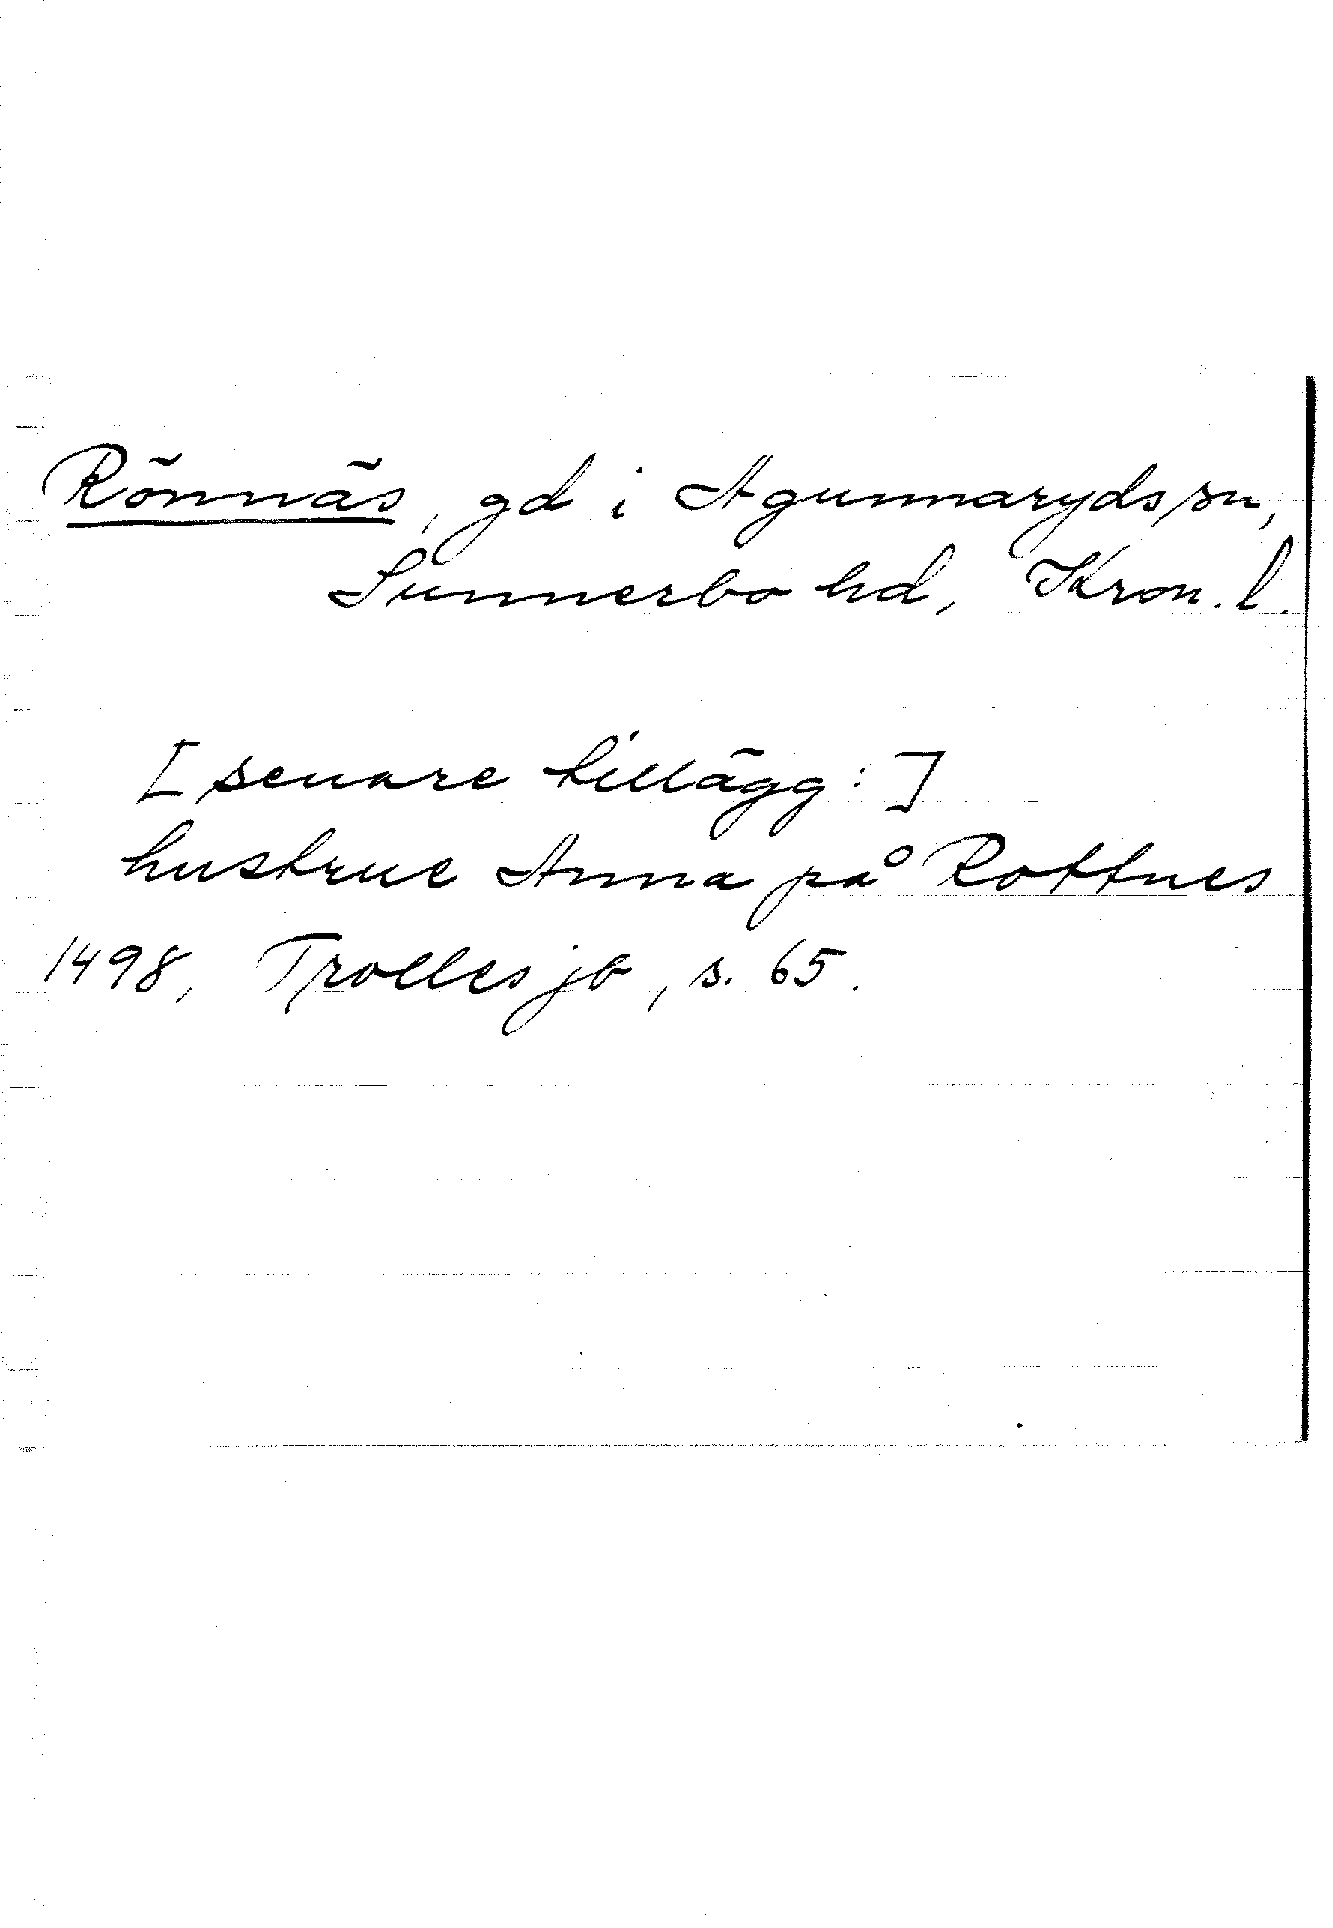 Rönnäs, gd i Agunnaryds sn,
Sunnerbo hd, Kron. l.
[senare tillägg:]
hustrue Anna på Rottnes
1498, Trolles jb, s. 65.